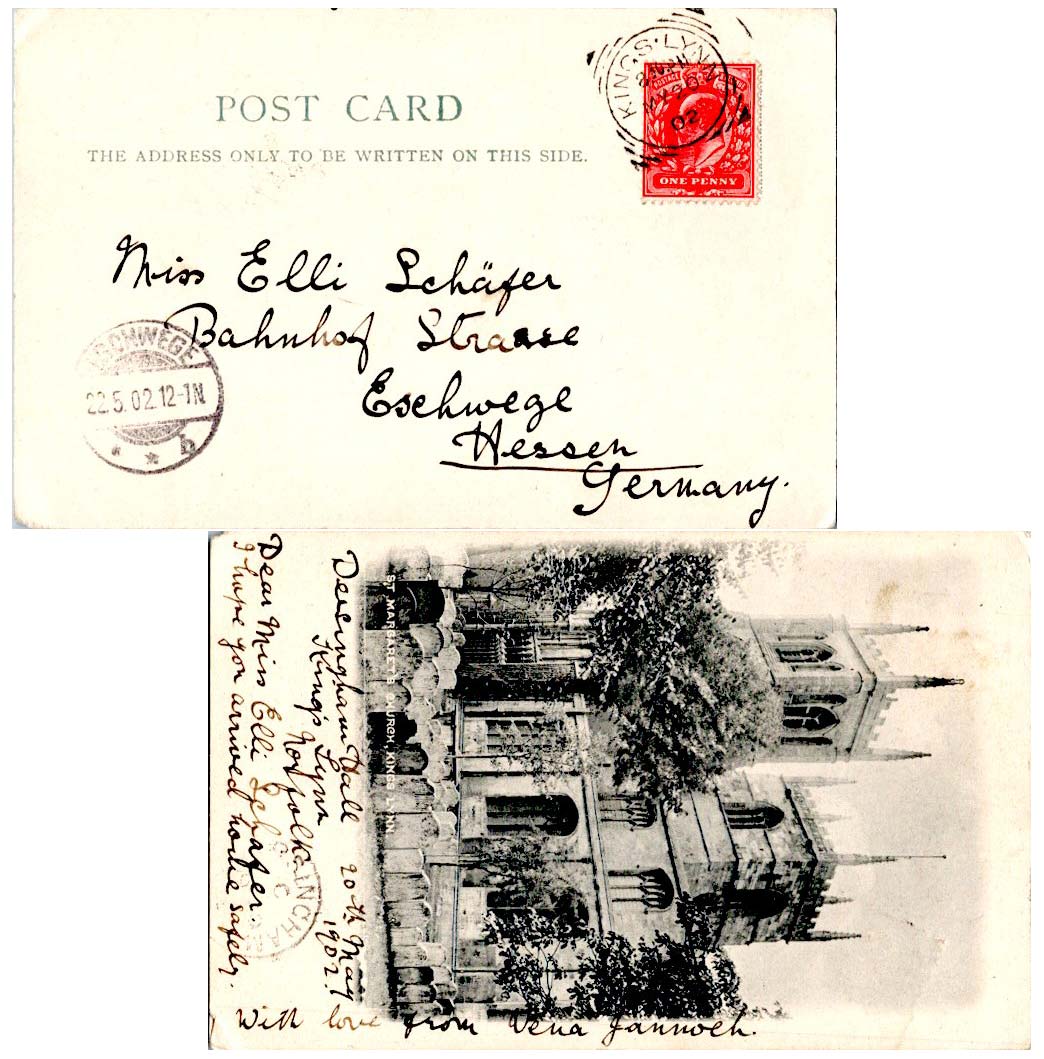 POST CARD
THE ADDRESS ONLY TO BE WRITTEN ON THIS SIDE.
KINGS·LYNN
MY 20
02
POSTAGE
ONE PENNY
Miss Elli Schäfer
Bahnhof Strasse
Eschwege
Hessen
Germany.
ESCHWEGE
22.5.02.12-1N
* * b
ST. MARGARET'S CHURCH, KINGS LYNN
Dersingham Hall 20th May
King's Lynn 1902.
Norfolk
Dear Miss Elli Schäfer.
I hope you arrived home safely.
With love from Vena Jannoch.